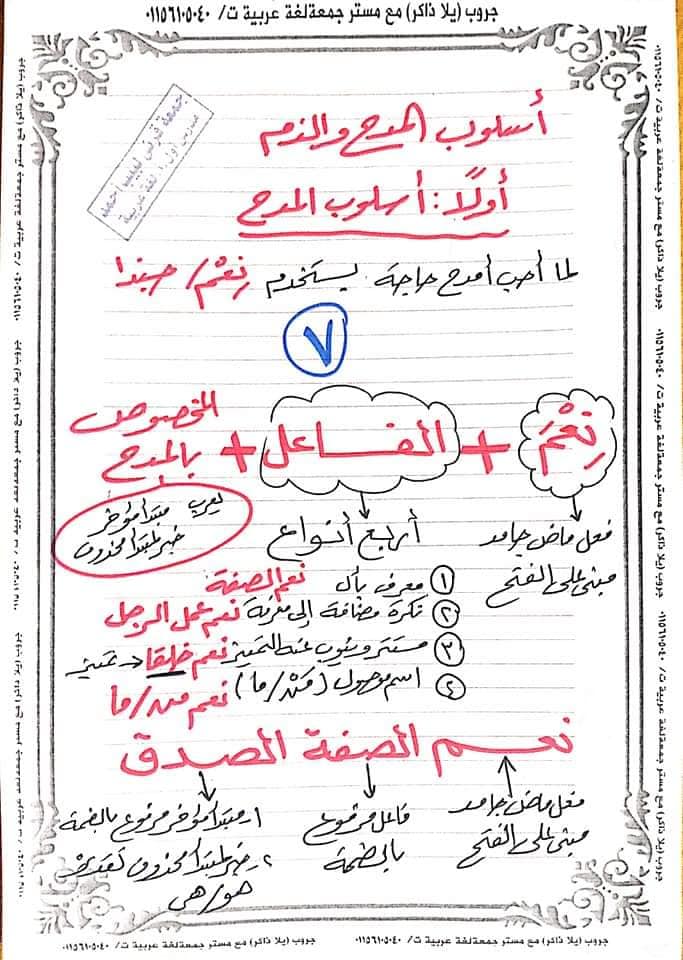 جروب (يلا ذاكر) مع مستر جمعة لغة عربية ت/ ٠١١٥٦١٠٥٠٤٠
أسلوب المدح والذم
أولًا: أسلوب المدح
لما أحب أمدح حاجة يستخدم نِعْم/ حبذا
٧
نِعْمَ + الفاعل + المخصوص بالمدح
فعل ماض جامد
مبنى على الفتح
أربع أنواع
يعرب مبتدأ مؤخر
خبر لمبتدأ محذوف
١ معرف بأل نعم الصفة
٢ نكرة مضافة إلى معرفة نعم عمل الرجل
٣ مستتر وينوب عنه التمييز نعم خلقا → تمييز
٤ اسم موصول (مَنْ/ما) نعم من/ما
نعم الصفة الصدق
فعل ماض جامد
مبنى على الفتح
فاعل مرفوع
بالضمة
١. مبتدأ مؤخر مرفوع بالضمة
٢. خبر لمبتدأ محذوف تقديره
هو/هي
جروب (يلا ذاكر) مع مستر جمعة لغة عربية ت/ ٠١١٥٦١٠٥٠٤٠
جروب (يلا ذاكر) مع مستر جمعة لغة عربية ت/ ٠١١٥٦١٠٥٠٤٠